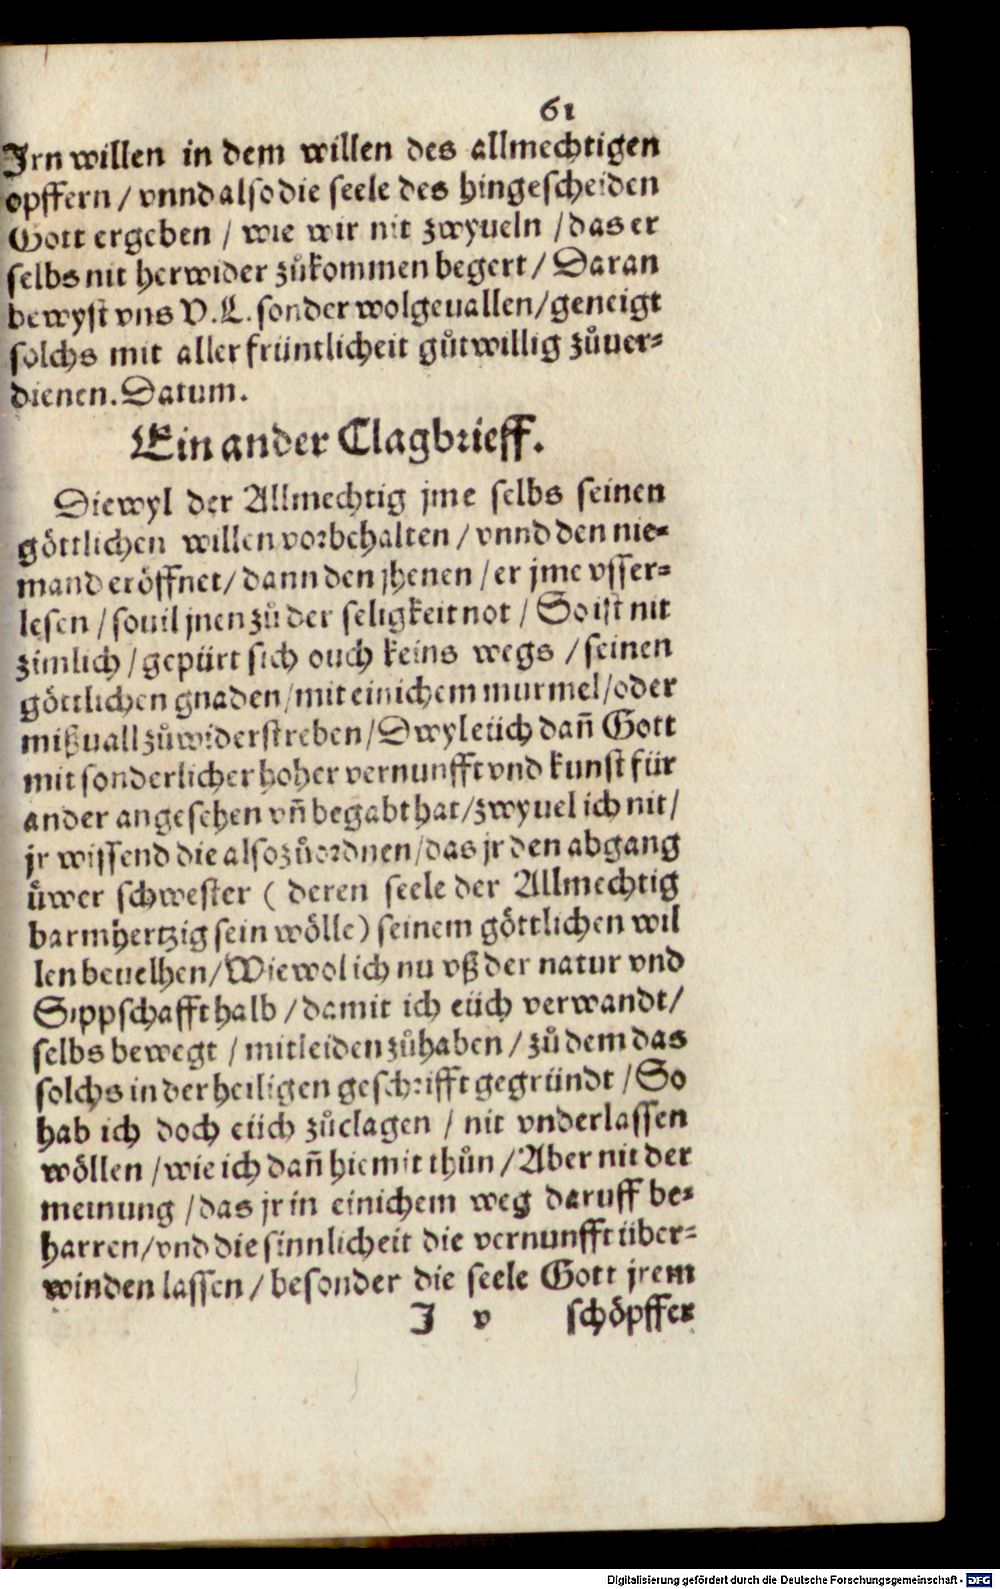 61
Irn willen in dem willen des allmechtigen
opffern / vnnd also die seele des hingescheiden
Gott ergeben / wie wir nit zwyueln / das er
selbs nit herwider zůkommen begert / Daran
bewyst vns V. L. sonder wolgeuallen / geneigt
solchs mit aller früntlicheit gůtwillig zůuer=
dienen. Datum.
Ein ander Clagbrieff.
Diewyl der Allmechtig jme selbs seinen
göttlichen willen vorbehalten / vnnd den nie=
mand eröffnet / dann den jhenen / er jme vsser=
lesen / souil jnen zů der seligkeit not / So ist nit
zimlich / gepürt sich ouch keins wegs / seinen
göttlichen gnaden / mit einichem murmel / oder
mißuall zůwiderstreben / Dwyl eüch dañ Gott
mit sonderlicher hoher vernunfft vnd kunst für
ander angesehen vñ begabt hat / zwyuel ich nit /
jr wissend die also zůordnen / das jr den abgang
üwer schwester ( deren seele der Allmechtig
barmhertzig sein wölle ) seinem göttlichen wil
len beuelhen / Wiewol ich nu vß der natur vnd
Sippschafft halb / damit ich eüch verwandt /
selbs bewegt / mitleiden zůhaben / zů dem das
solchs in der heiligen geschrifft gegründt / So
hab ich doch eüch zůclagen / nit vnderlassen
wöllen / wie ich dañ hie mit thůn / Aber nit der
meinung / das jr in einichem weg daruff be=
harren / vnd die sinnlicheit die vernunfft über=
winden lassen / besonder die seele Gott jrem
I v schöpffer
Digitalisierung gefördert durch die Deutsche Forschungsgemeinschaft - DFG